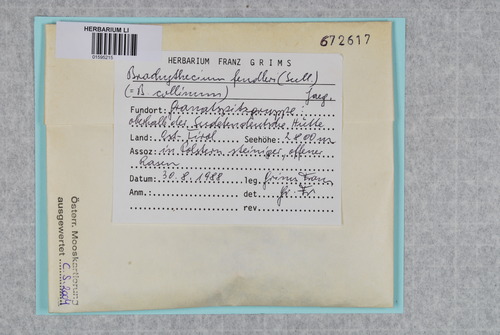 HERBARIUM LI
01595215
672617
HERBARIUM FRANZ GRIMS
Brachythecium fendleri (Sull.)
(= B. collinum) Jaeg.
Fundort: Granatspitzgruppe:
oberhalb der Sudetendeutsche Hütte
Land: Ost-Tirol Seehöhe: 2800 m
Assoz: in Polstern steiniger, offener
Rasen
Datum: 30.8.1988 leg. Grims Franz
Anm.: det. Gr. Fr.
rev.
Österr. Mooskartierung
ausgewertet C.S. 2004